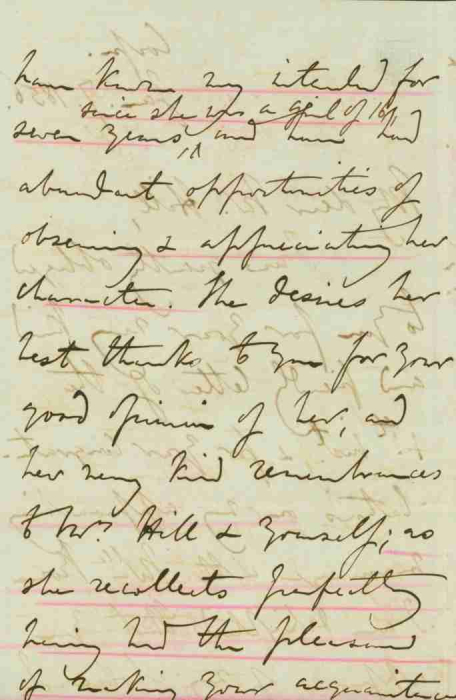 have known my intended for
since she was a girl of 16,
seven years, and have had
abundant opportunities of
observing & appreciating her
character. She desires her
best thanks to you for your
good opinion of her, and
her very kind remembrances
to Mrs Hill & yourself; as
she recollects perfectly
having had the pleasure
of making your acquaintance